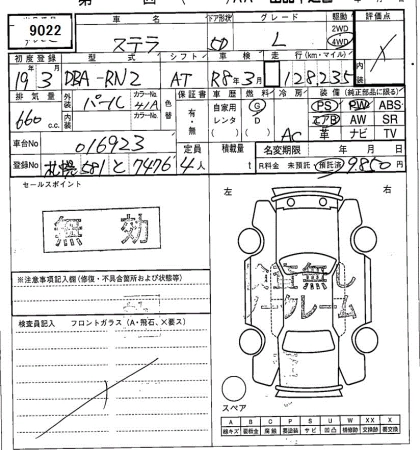 9022
車名 ドア形状 グレード 駆動 評価点
ステラ 5D L 2WD 4WD X
初度登録 型式 シフト 車検 走行(km・マイル)
19年3月 DBA-RN2 AT R8年3月 128,235
排気量 外装 内装 カラーNo. 色替 保証書 車歴 燃料 冷房 装備(純正部品に限る)
660c.c. パール 41A カラーNo. 有・無 自家用 レンタ G D AC PS PW ABS
エアB AW SR
革 ナビ TV
車台No. 016923 定員 積載量 名変期限 年 月 日
登録No. 札幌581と7476 4人 t R料金 未預託 預託済 9850円
セールスポイント 左 右
無効
※注意事項記入欄(修復・不具合箇所および状態等)
検査員記入 フロントガラス(A・飛石、×要ス)
検査無し
ノークレーム
スペア
A B C P S U W XX X
線キズ 要板金 腐蝕 要塗装 サビ 凹凸 補修跡 交換跡 要交換